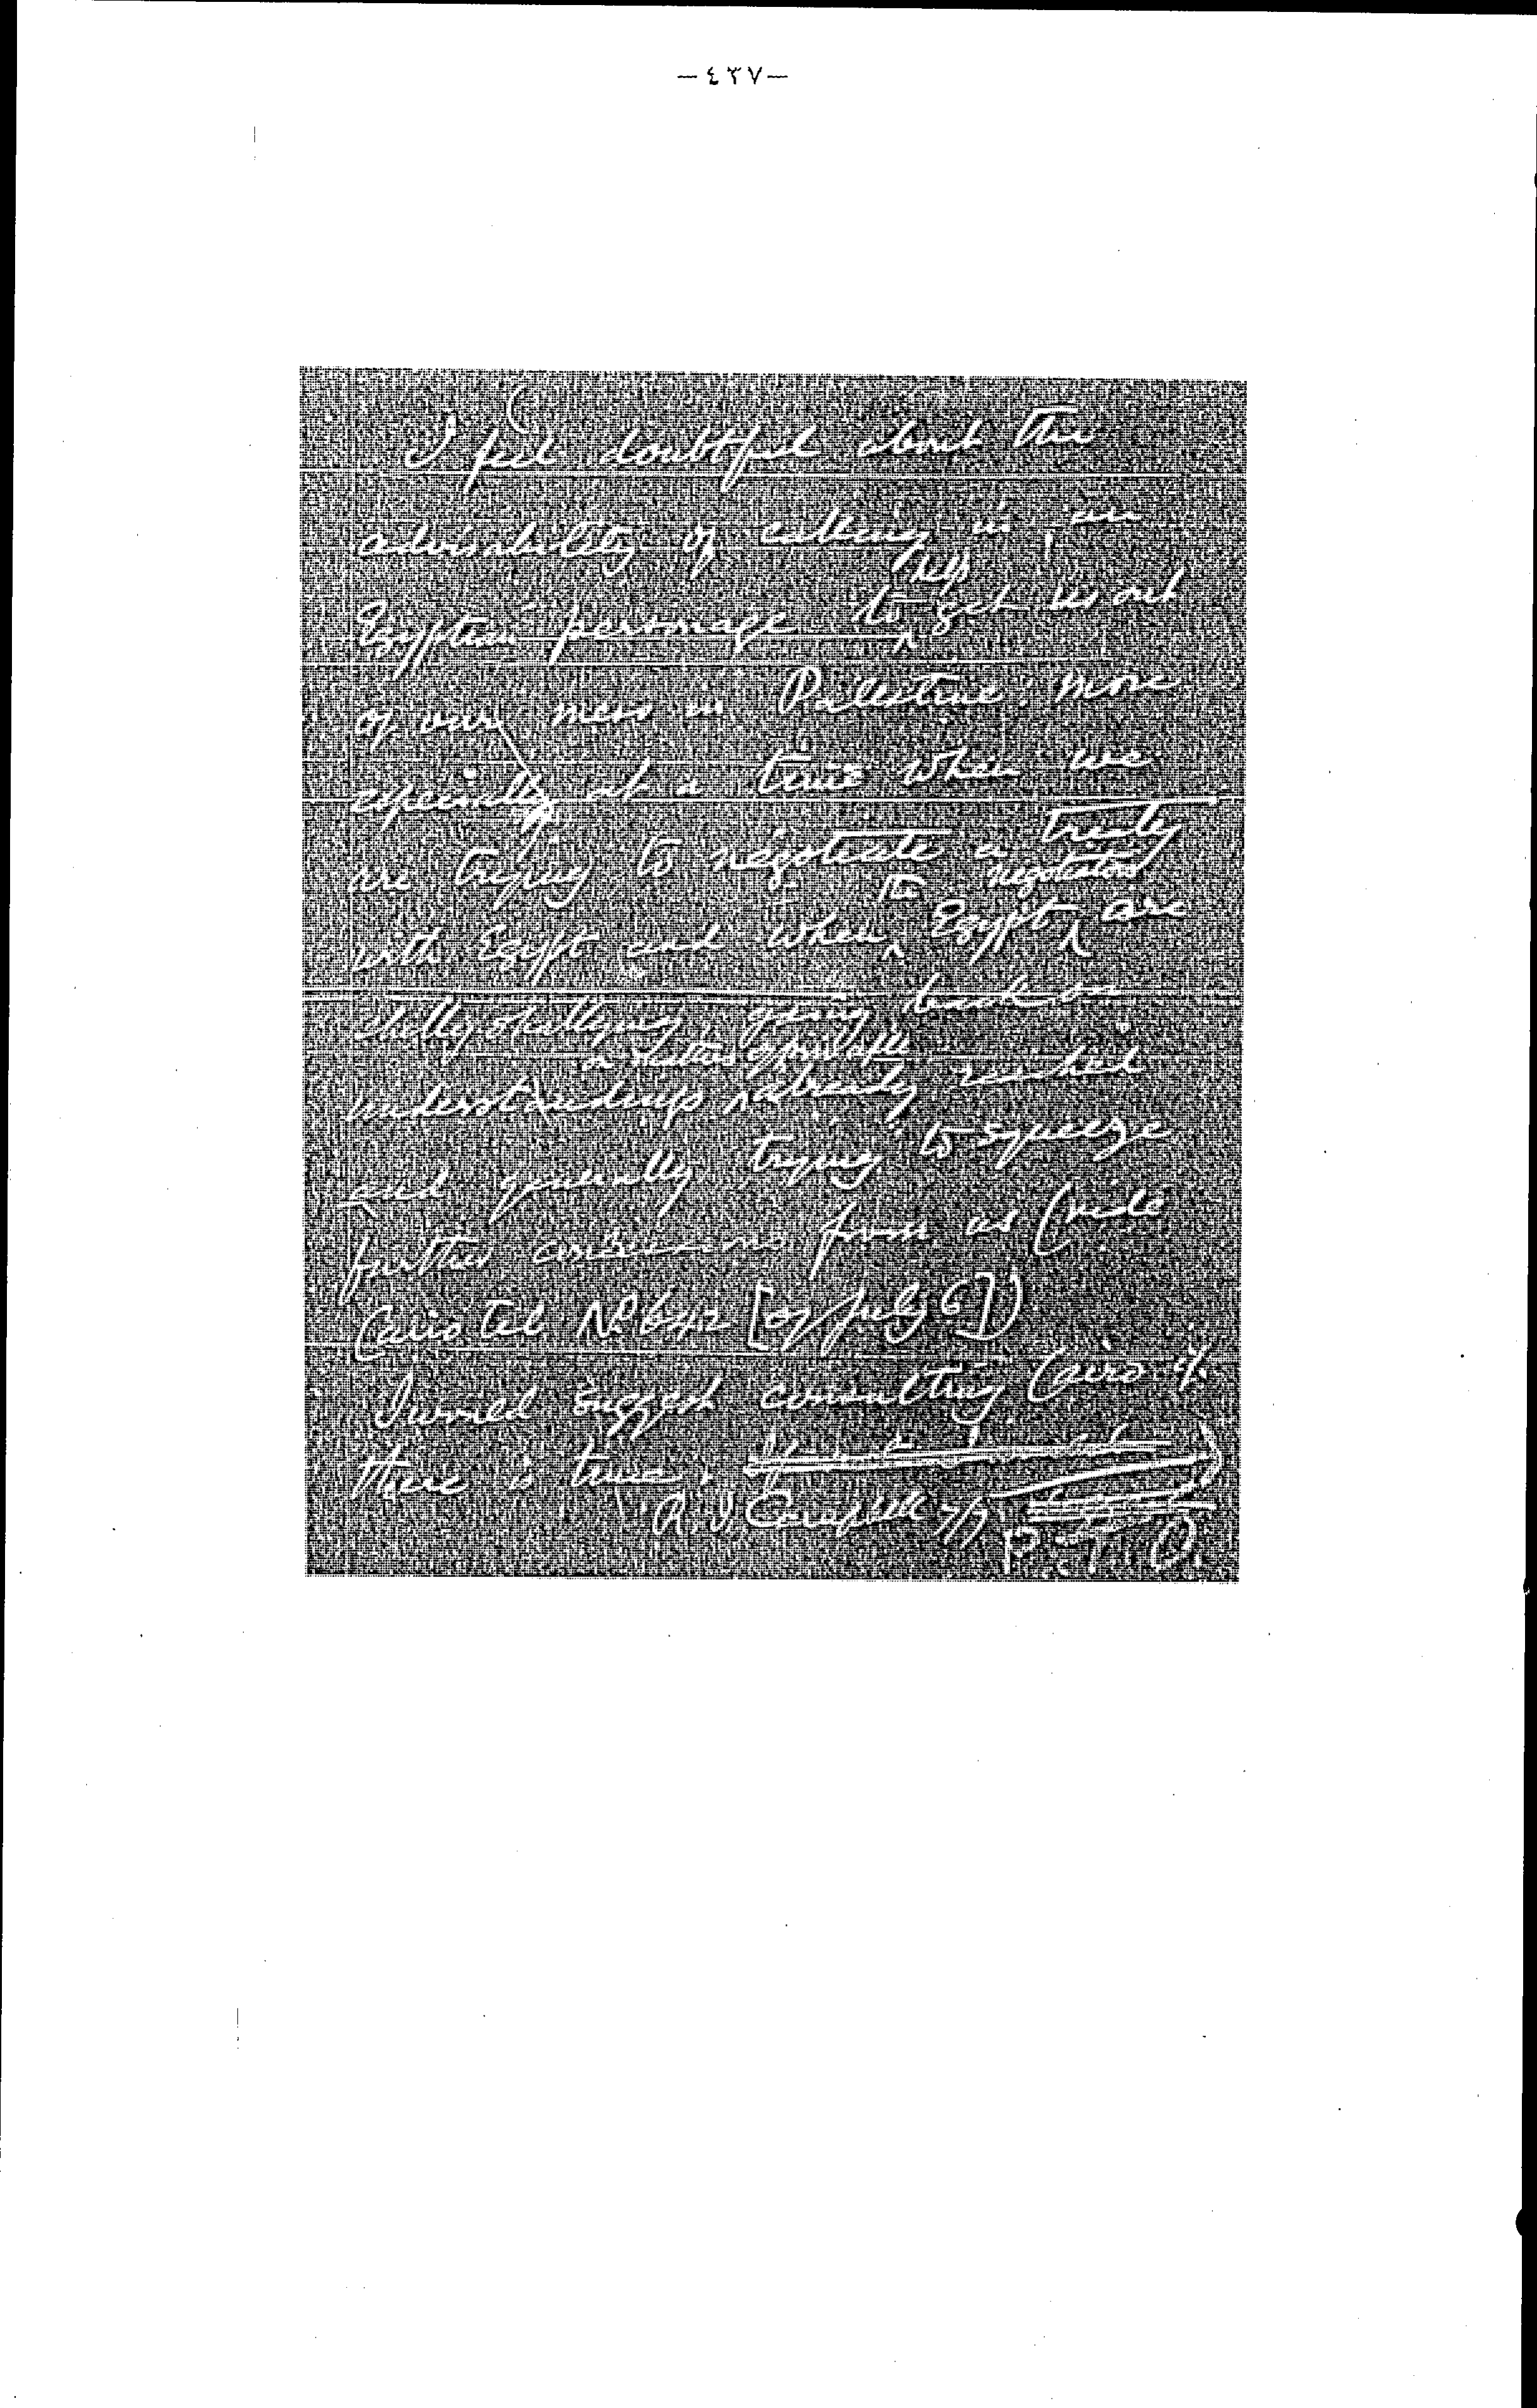 —٤٢٧—
I feel doubtful about the
advisability of calling in an
help
Egyptian personage to get us out
of our mess in Palestine, more
especially at a time when we
are trying to negotiate a treaty
the negotiators
with Egypt and when Egypt are
shillyshallying, going back on
understandings already reached
and generally trying to squeeze
further concessions from us (vide
Cairo tel. No 642 [of July 6])
I would suggest consulting Cairo if
there is time.
R.I. Campbell 7/7
P.T.O.